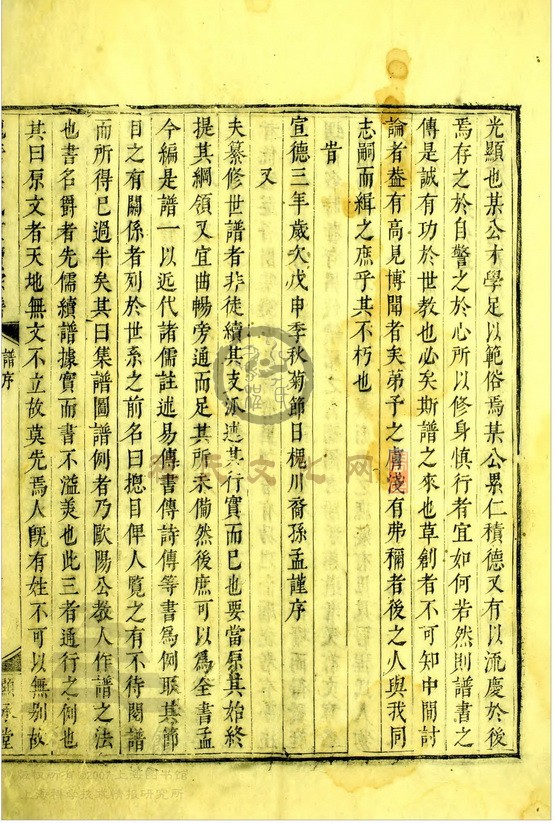 光顯也某公才學足以範俗焉某公累仁積德又有以流慶於後
焉存之於自警之於心所以修身慎行者宜如何若然則譜書之
傳是誠有功於世教也必矣斯譜之來也草創者不可知中間討
論者盍有高見博聞者矣弟予之膚淺有弗稱者後之人與我同
志嗣而緝之庶乎其不朽也
旹
宣德三年歲次戊申季秋菊節日槐川裔孫孟謹序
又
夫纂修世譜者非徒續其支派述其行實而已也要當原其始終
提其綱領又宜曲暢旁通而足其所未備然後庶可以爲全書孟
今編是譜一以近代諸儒註述易傳書傳詩傳等書爲例取其節
目之有關係者列於世系之前名曰摠目俾人覽之有不待閱譜
而所得已過半矣其曰集譜圖譜例者乃歐陽公教人作譜之法
也書名爵者先儒續譜據實而書不溢美也此三者通行之例也
其曰原文者天地無文不立故莫先焉人旣有姓不可以無别故
譜序
順承堂
上海科學技術情報研究所